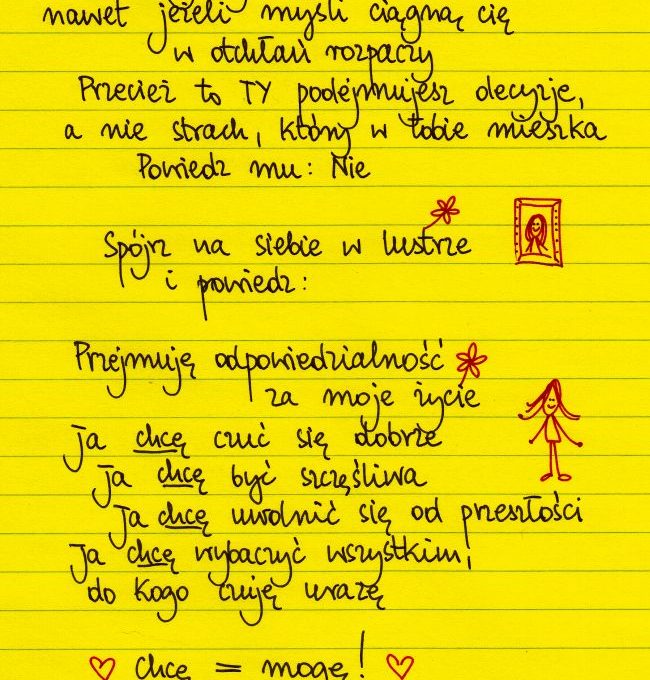 nawet jeżeli myśli ciągną cię
w otchłań rozpaczy
Przecież to TY podejmujesz decyzje,
a nie strach, który w tobie mieszka
Powiedz mu: Nie
Spójrz na siebie w lustrze
i powiedz:
Przejmuję odpowiedzialność
za moje życie
Ja chcę czuć się dobrze
Ja chcę być szczęśliwa
Ja chcę uwolnić się od przeszłości
Ja chcę wybaczyć wszystkim,
do kogo czuję urazę
chcę = mogę!